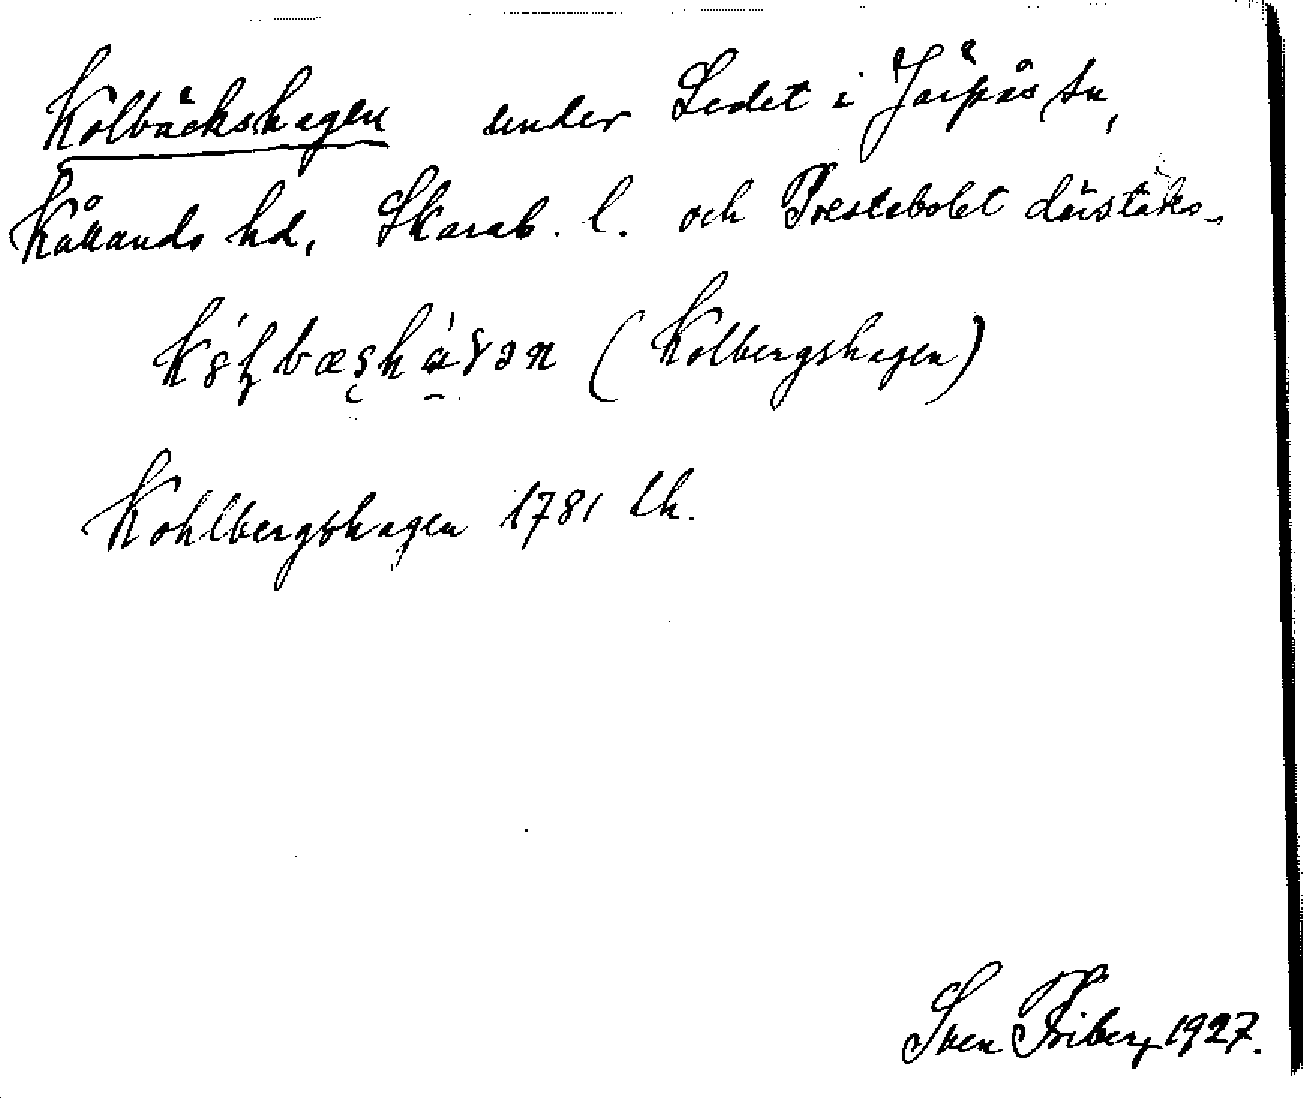 Kolbäckshagen under Ledet i Järpås sn,
Kållands hd, Skarab. l. och Prestebolet därstädes
(Kolbergshagen)
Kohlbergshagen 1781 lh.
Sven Friberg 1927.